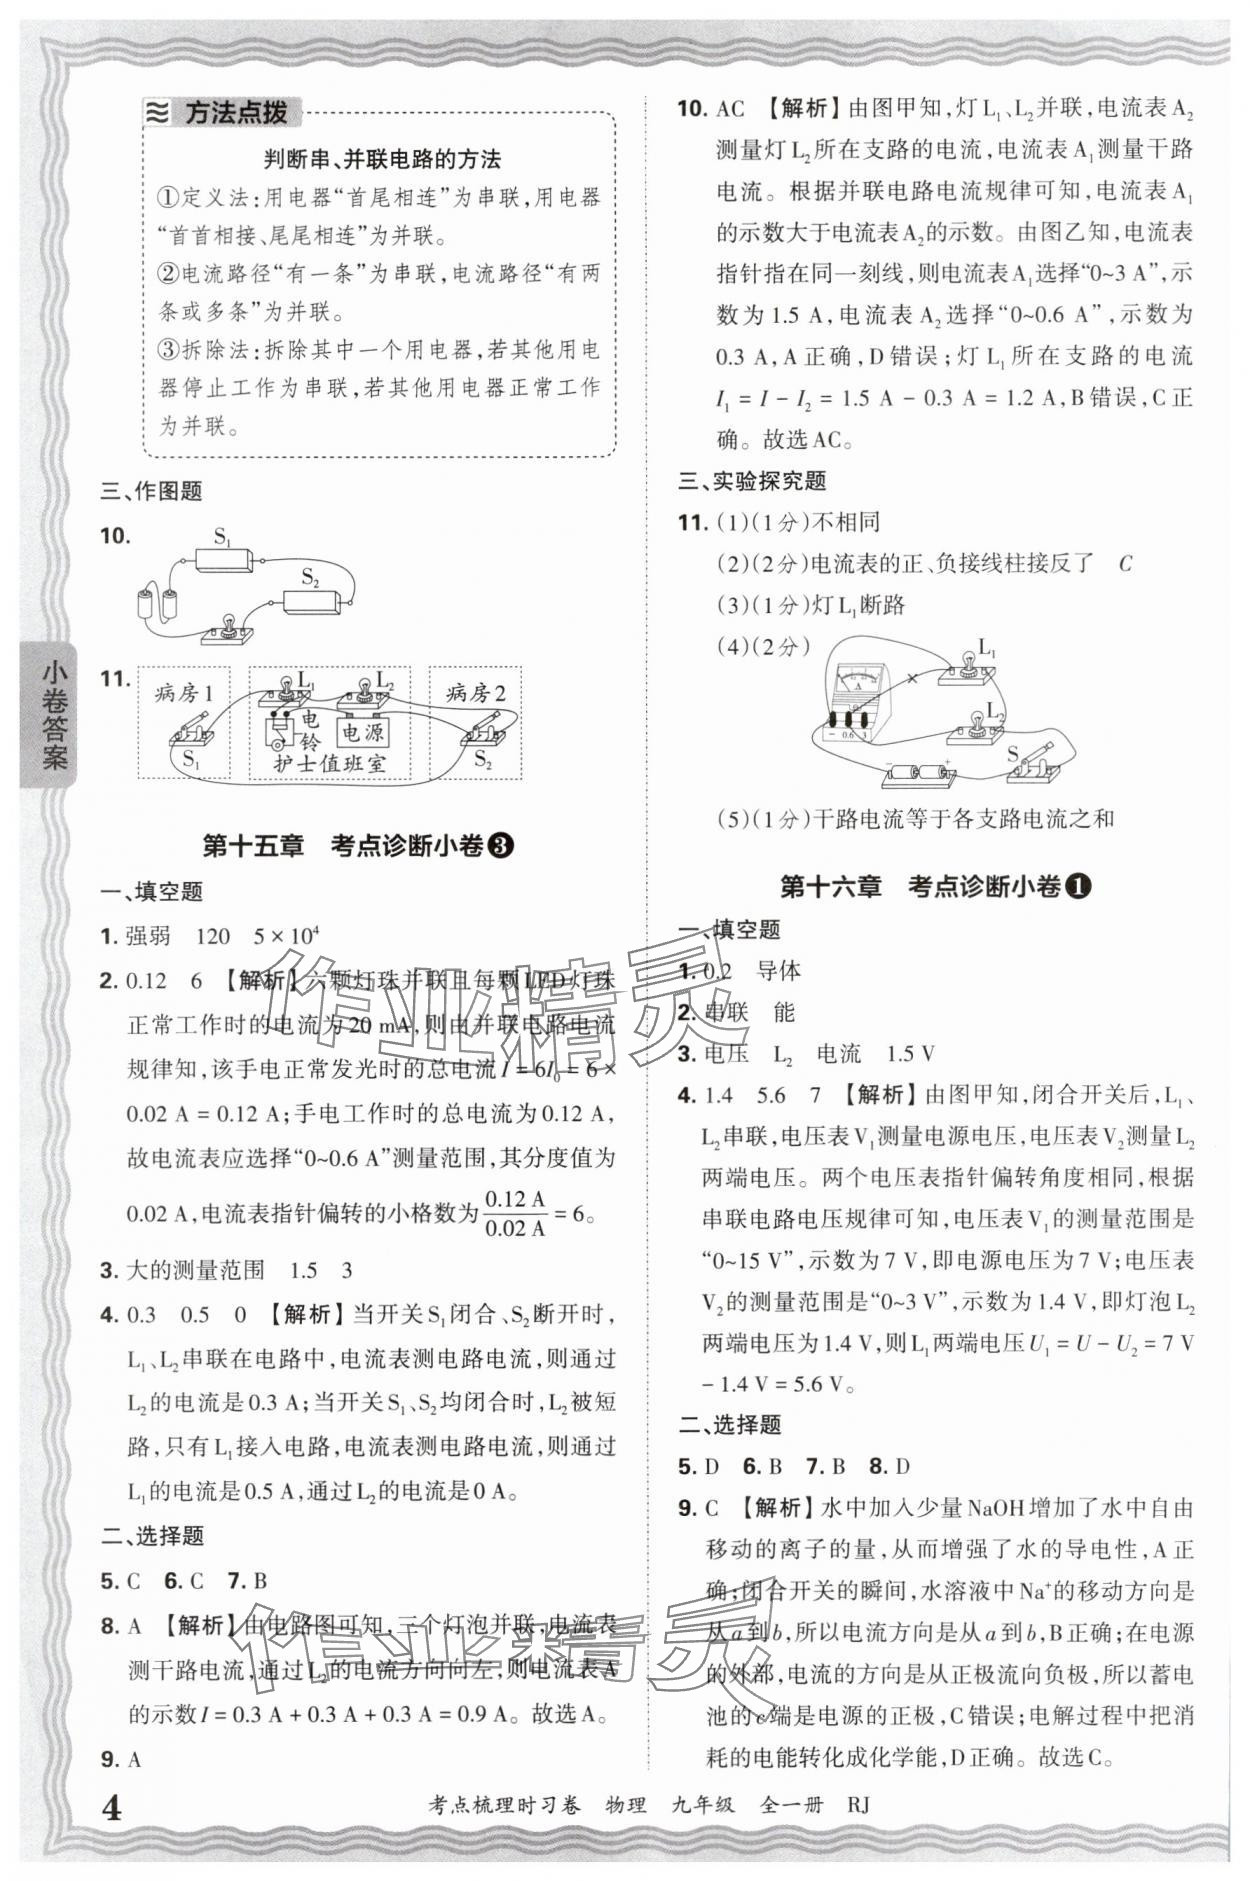 方法点拨
判断串、并联电路的方法
①定义法:用电器“首尾相连”为串联,用电器
“首首相接、尾尾相连”为并联。
②电流路径“有一条”为串联,电流路径“有两
条或多条”为并联。
③拆除法:拆除其中一个用电器,若其他用电
器停止工作为串联,若其他用电器正常工作
为并联。
三、作图题
10.
S₁
S₂
11.
病房1
L₁
L₂
病房2
电铃
电源
S₁
护士值班室
S₂
第十五章 考点诊断小卷❸
一、填空题
1. 强弱 120 5×10⁴
2. 0.12 6 【解析】六颗灯珠并联且每颗LED灯珠
正常工作时的电流为20 mA,则由并联电路电流
规律知,该手电正常发光时的总电流I=6I₀=6×
0.02 A=0.12 A;手电工作时的总电流为0.12 A,
故电流表应选择“0~0.6 A”测量范围,其分度值为
0.02 A,电流表指针偏转的小格数为0.12 A/0.02 A=6。
3. 大的测量范围 1.5 3
4. 0.3 0.5 0 【解析】当开关S₁闭合、S₂断开时,
L₁、L₂串联在电路中,电流表测电路电流,则通过
L₂的电流是0.3 A;当开关S₁、S₂均闭合时,L₂被短
路,只有L₁接入电路,电流表测电路电流,则通过
L₁的电流是0.5 A,通过L₂的电流是0 A。
二、选择题
5. C 6. C 7. B
8. A 【解析】由电路图可知,三个灯泡并联,电流表
测干路电流,通过L₂的电流方向向左,则电流表A
的示数I=0.3 A+0.3 A+0.3 A=0.9 A。故选A。
9. A
10. AC 【解析】由图甲知,灯L₁、L₂并联,电流表A₂
测量灯L₂所在支路的电流,电流表A₁测量干路
电流。根据并联电路电流规律可知,电流表A₁
的示数大于电流表A₂的示数。由图乙知,电流表
指针指在同一刻线,则电流表A₁选择“0~3 A”,示
数为1.5 A,电流表A₂选择“0~0.6 A”,示数为
0.3 A,A正确,D错误;灯L₁所在支路的电流
I₁=I-I₂=1.5 A-0.3 A=1.2 A,B错误,C正
确。故选AC。
三、实验探究题
11. (1)(1分)不相同
(2)(2分)电流表的正、负接线柱接反了 C
(3)(1分)灯L₁断路
(4)(2分)
L₁
A
- 0.6 3
L₂
S
- +
(5)(1分)干路电流等于各支路电流之和
第十六章 考点诊断小卷❶
一、填空题
1. 0.2 导体
2. 串联 能
3. 电压 L₂ 电流 1.5 V
4. 1.4 5.6 7 【解析】由图甲知,闭合开关后,L₁、
L₂串联,电压表V₁测量电源电压,电压表V₂测量L₂
两端电压。两个电压表指针偏转角度相同,根据
串联电路电压规律可知,电压表V₁的测量范围是
“0~15 V”,示数为7 V,即电源电压为7 V;电压表
V₂的测量范围是“0~3 V”,示数为1.4 V,即灯泡L₂
两端电压为1.4 V,则L₁两端电压U₁=U-U₂=7 V
-1.4 V=5.6 V。
二、选择题
5. D 6. B 7. B 8. D
9. C 【解析】水中加入少量NaOH增加了水中自由
移动的离子的量,从而增强了水的导电性,A正
确;闭合开关的瞬间,水溶液中Na⁺的移动方向是
从a到b,所以电流方向是从a到b,B正确;在电源
的外部,电流的方向是从正极流向负极,所以蓄电
池的c端是电源的正极,C错误;电解过程中把消
耗的电能转化成化学能,D正确。故选C。
小卷答案
作业精灵
作业精灵
4
考点梳理时习卷 物理 九年级 全一册 RJ